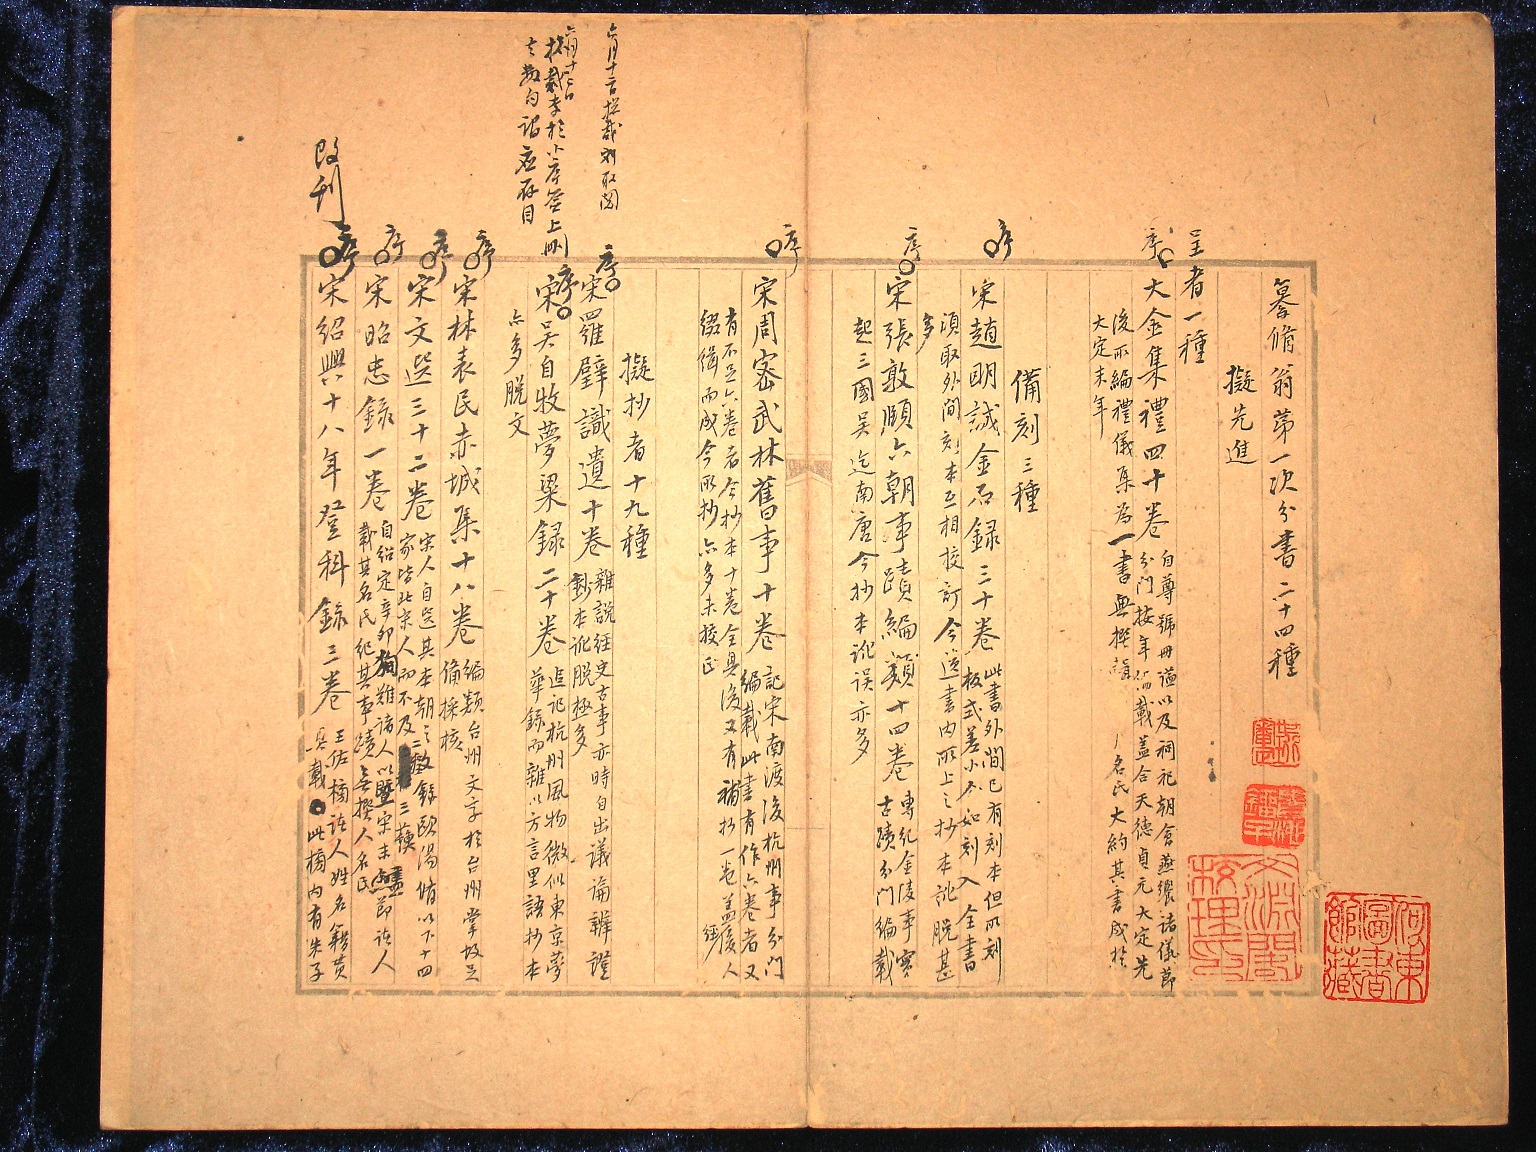 纂脩翁第一次分書二十四種
擬先進
呈者一種
序
大金集禮四十卷
自尊號冊謚以及祠祀朝會燕饗諸儀節
分門按年臚載蓋合天德貞元大定先
後所編禮儀集為一書無撰輯名氏大約其書成於
大定末年
備刻三種
序
宋趙明誠金石錄三十卷
此書外間已有刻本但所刻
板式差小不如刻入全書
須取外間刻本互相校訂今進書內所上之抄本訛脫甚
多
序
宋張敦頤六朝事蹟編類十四卷
專紀金陵事實
古蹟分門編載
起三國吳迄南唐今抄本訛誤亦多
序
宋周密武林舊事十卷
記宋南渡後杭州事分門
編載此書有作六卷者又
有不足六卷者今抄本十卷全具後又有補抄一卷蓋後人
綴緝而成今所抄亦多未校正
擬抄者十九種
序
宋羅璧識遺十卷
雜說經史古事亦時自出議論辨證
鈔本訛脫極多
序
宋吳自牧夢梁錄二十卷
追記杭州風物微似東京夢
華錄而雜以方言里語抄本
亦多脫文
序
宋林表民赤城集十八卷
編類台州文字於台州掌故足
備採核
序
宋文選三十二卷
宋人自選其本朝之文錄歐陽脩以下十四
家皆北宋人而不及三蘇
序
宋昭忠錄一卷
自紹定辛卯殉難諸人以暨宋末盡節諸人
載其名氏紀其事蹟無撰人名氏
序
宋紹興十八年登科錄三卷
王佐榜諸人姓名籍貫
具載此榜內有朱子
改刊